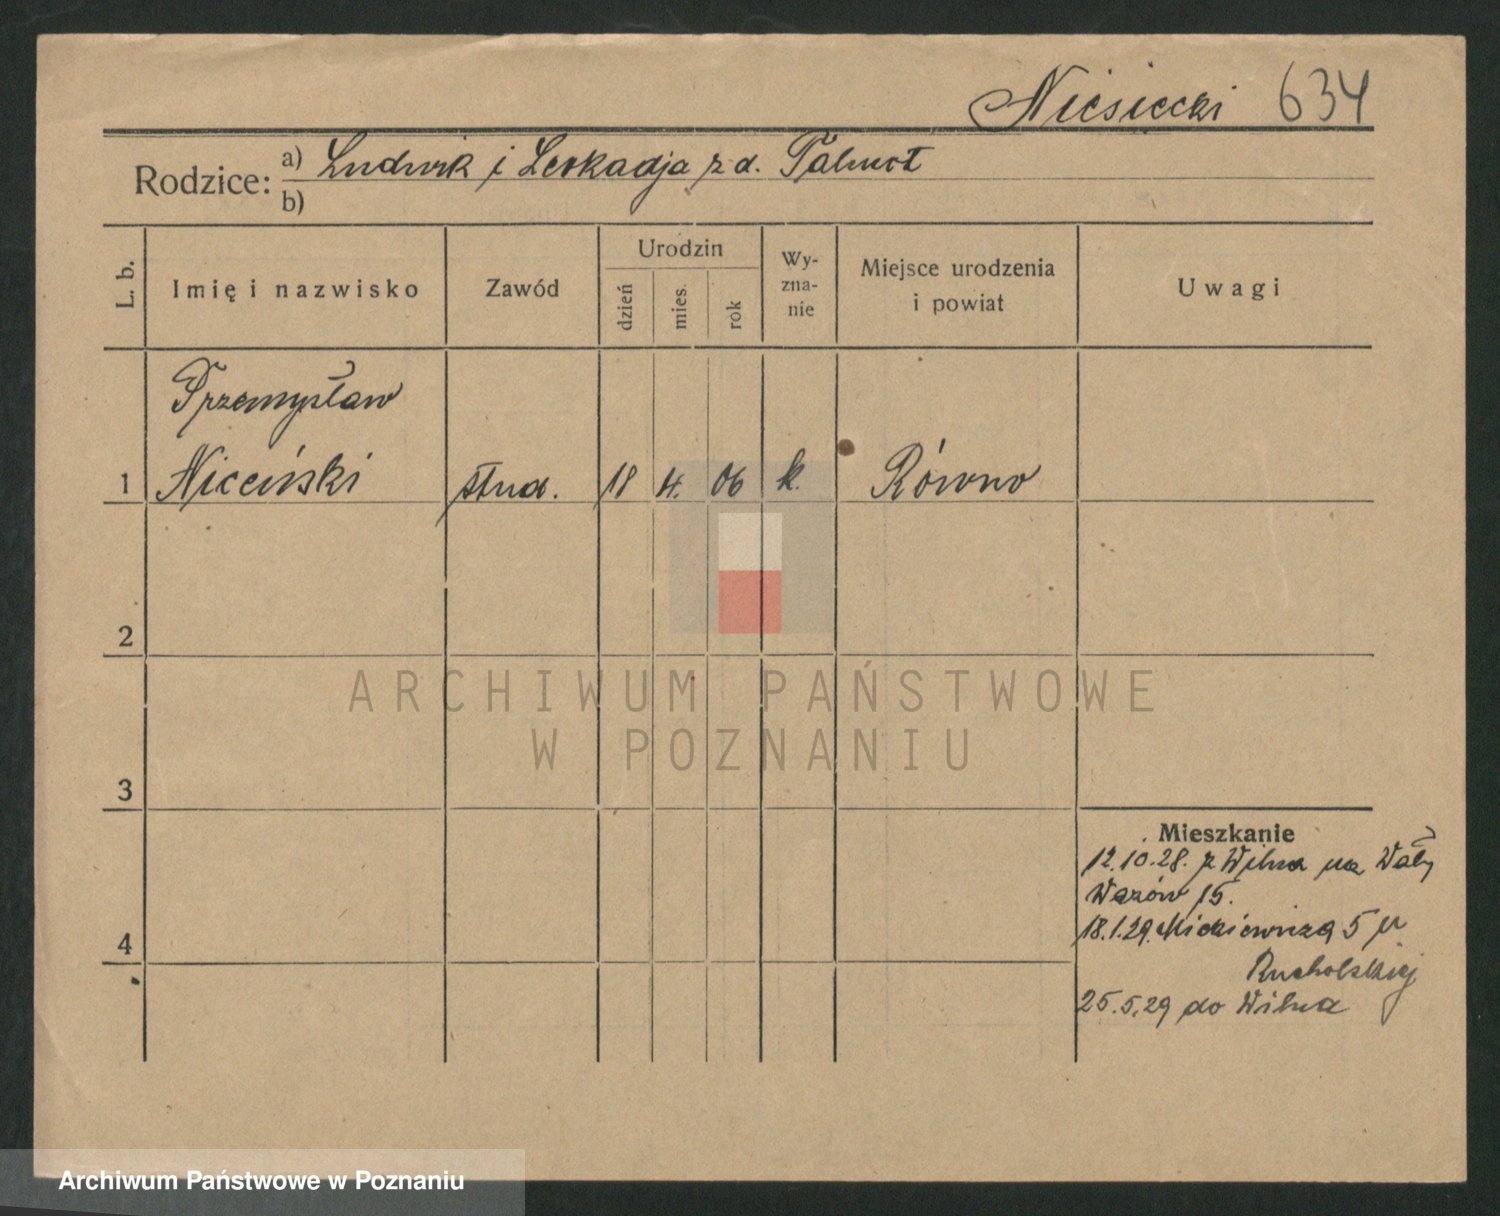 Niesiecki 634
Rodzice: a) Ludwik i Leokadja z d.
b)
L. b.
Imię i nazwisko
Zawód
Urodzin
dzień
mies.
rok
Wy-
zna-
nie
Miejsce urodzenia
i powiat
Uwagi
Przemysław
1 Niceński stud. 18 4. 06 k. Równo
2
ARCHIWUM PAŃSTWOWE
W POZNANIU
3
Mieszkanie
12.10.28. z Wilna na Wały
Wazów 15.
18.1.29. Mickiewicza 5 u
4
25.5.29 do Wilna
Archiwum Państwowe w Poznaniu